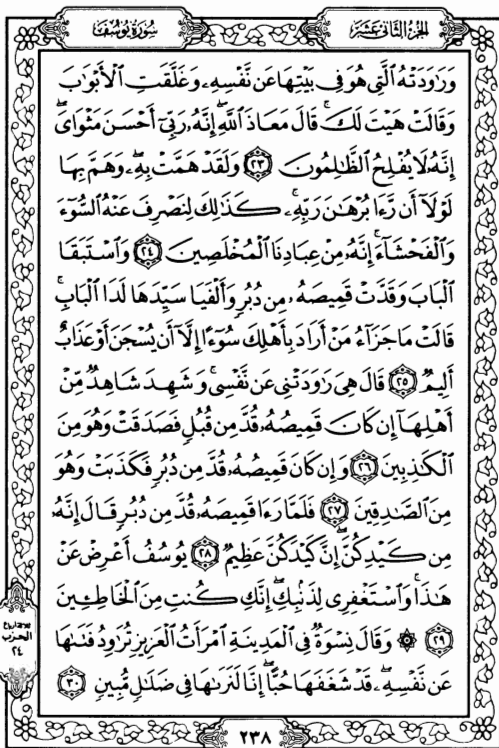 سُورَةُ يُوسُفَ
الجُزْءُ الثَّانِي عَشَرَ
وَرَاوَدَتْهُ الَّتِي هُوَ فِي بَيْتِهَا عَن نَّفْسِهِ وَغَلَّقَتِ الْأَبْوَابَ
وَقَالَتْ هَيْتَ لَكَ ۚ قَالَ مَعَاذَ اللَّهِ ۖ إِنَّهُ رَبِّي أَحْسَنَ مَثْوَايَ ۖ
إِنَّهُ لَا يُفْلِحُ الظَّالِمُونَ ٢٣ وَلَقَدْ هَمَّتْ بِهِ ۖ وَهَمَّ بِهَا
لَوْلَا أَن رَّءَا بُرْهَانَ رَبِّهِ ۚ كَذَٰلِكَ لِنَصْرِفَ عَنْهُ السُّوءَ
وَالْفَحْشَاءَ ۚ إِنَّهُ مِنْ عِبَادِنَا الْمُخْلَصِينَ ٢٤ وَاسْتَبَقَا
الْبَابَ وَقَدَّتْ قَمِيصَهُ مِن دُبُرٍ وَأَلْفَيَا سَيِّدَهَا لَدَا الْبَابِ ۚ
قَالَتْ مَا جَزَاءُ مَنْ أَرَادَ بِأَهْلِكَ سُوءًا إِلَّا أَن يُسْجَنَ أَوْ عَذَابٌ
أَلِيمٌ ٢٥ قَالَ هِيَ رَاوَدَتْنِي عَن نَّفْسِي ۚ وَشَهِدَ شَاهِدٌ مِّنْ
أَهْلِهَا إِن كَانَ قَمِيصُهُ قُدَّ مِن قُبُلٍ فَصَدَقَتْ وَهُوَ مِنَ
الْكَاذِبِينَ ٢٦ وَإِن كَانَ قَمِيصُهُ قُدَّ مِن دُبُرٍ فَكَذَبَتْ وَهُوَ
مِنَ الصَّادِقِينَ ٢٧ فَلَمَّا رَءَا قَمِيصَهُ قُدَّ مِن دُبُرٍ قَالَ إِنَّهُ
مِن كَيْدِكُنَّ ۖ إِنَّ كَيْدَكُنَّ عَظِيمٌ ٢٨ يُوسُفُ أَعْرِضْ عَنْ
هَٰذَا ۚ وَاسْتَغْفِرِي لِذَنبِكِ ۖ إِنَّكِ كُنتِ مِنَ الْخَاطِئِينَ
٢٩ ۞ وَقَالَ نِسْوَةٌ فِي الْمَدِينَةِ امْرَأَتُ الْعَزِيزِ تُرَاوِدُ فَتَاهَا
عَن نَّفْسِهِ ۖ قَدْ شَغَفَهَا حُبًّا ۖ إِنَّا لَنَرَاهَا فِي ضَلَالٍ مُّبِينٍ ٣٠
الحزب
٢٤
٢٣٨